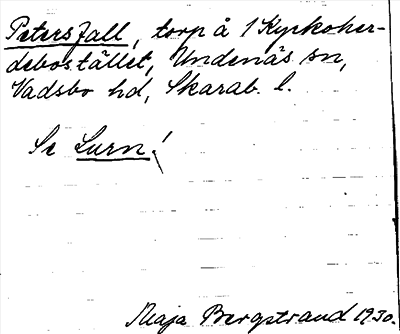 Petersfall, torp å 1 Kyrkoher-
debostället, Undenäs sn,
Vadsbo hd, Skarab. l.
Se Lurn!
Maja Bergstrand 1930.